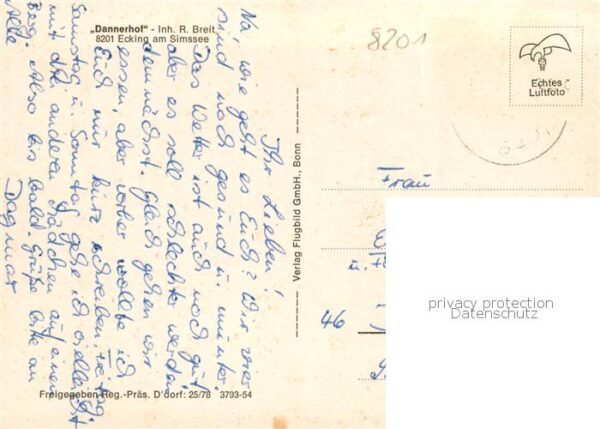 „Dannerhof" - Inh. R. Breit
8201 Ecking am Simssee
8201
Echtes
Luftfoto
Ihr Lieben!
Na wie geht es Euch? Wir vier
sind noch gesund u. munter.
Das Wetter ist auch noch gut
aber es soll schlechter werden
demnächst. Gleich gehen wir
essen, aber vorher wollte ich
Euch kurz schreiben.
Samstag u. Sonntag gehe ich vielleicht
mit den anderen Mädchen auf einen
Berg. Also bis bald. Grüße bitte an
Alle
Dagmar
Verlag Flugbild GmbH., Bonn
Frau
u.
46
privacy protection
Datenschutz
Freigegeben Reg.-Präs. D'dorf: 25/78 3793-54